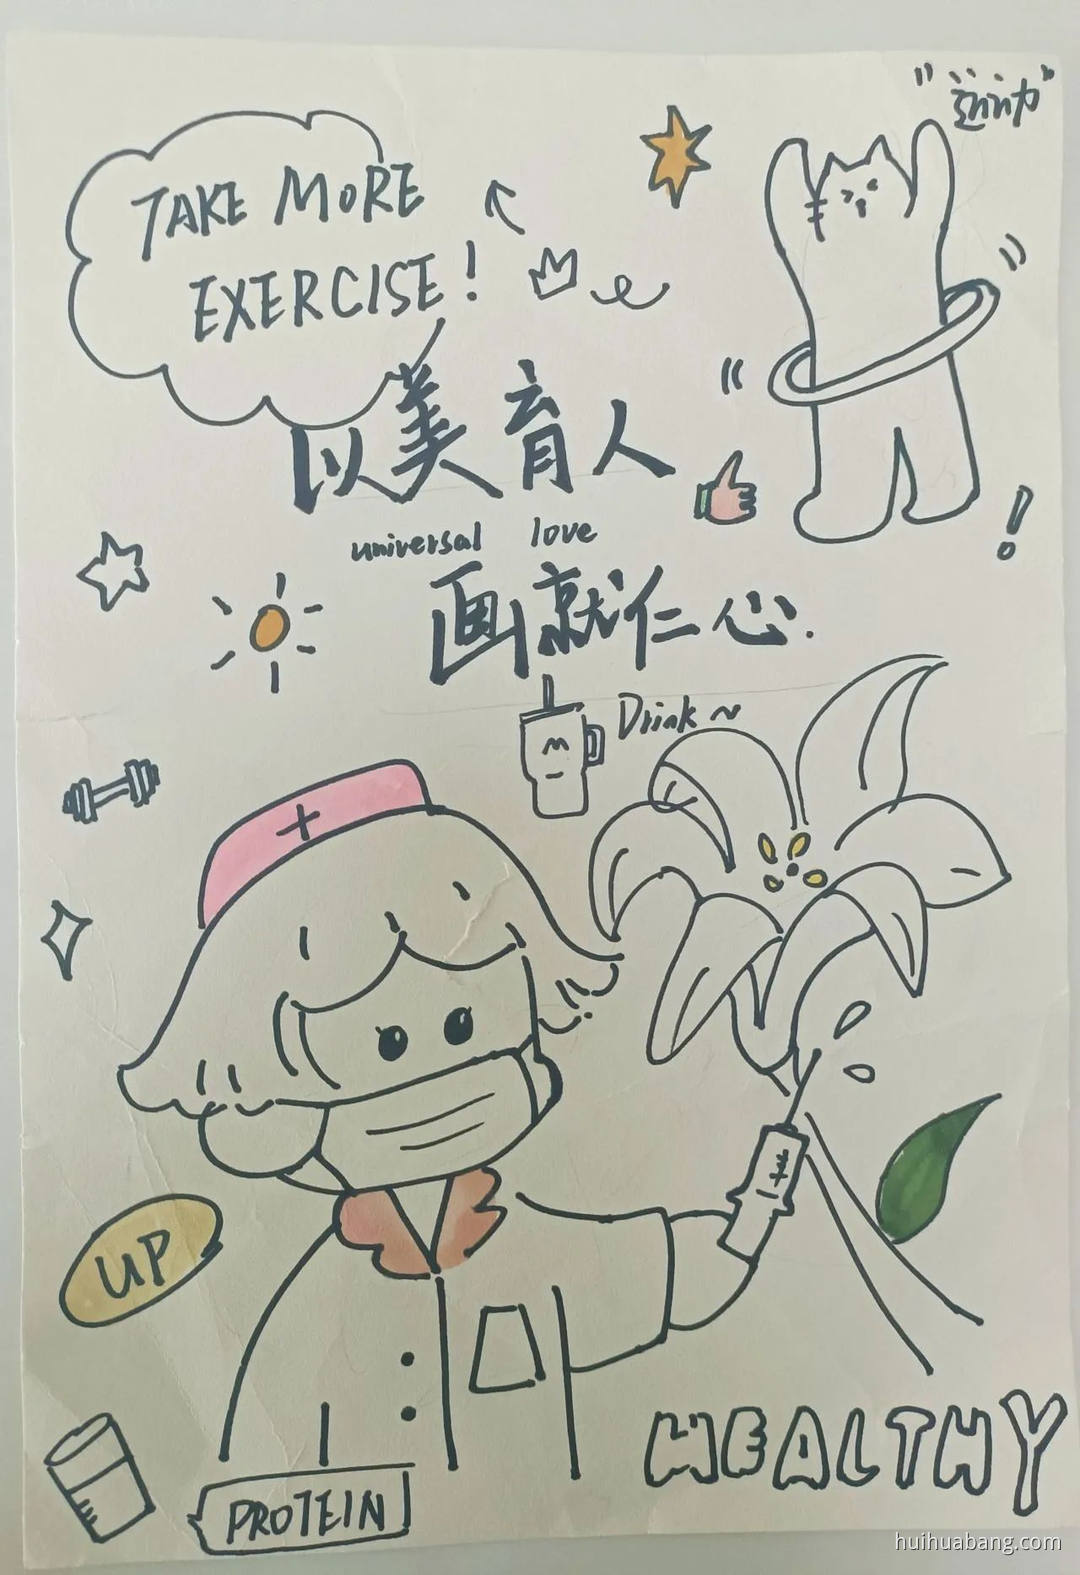 TAKE MORE
EXERCISE!
以美育人
universal love
画就仁心.
Drink ~
UP
HEALTHY
PROTEIN
huihuabang.com